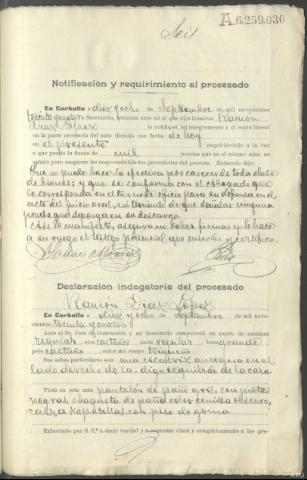 Seis
A6.259.030
Notificación y requirimiento al procesado
En Carballo a diez y ocho de Septiembre de mil novecientos
treinta y cuatro Yo Secretario, teniendo ante mi al que dijo llamarse Ramon
Diaz Lopez le notifiqué, leí íntegramente y dí copia literal
en la parte necesaria del auto dictado con fecha de hoy
en el presente requiriéndole a la vez
a que preste la fianza de mil pesetas que en el mismo auto se
señala para asegurar las responsabilidades pecuniarias del proceso. Enterado dijo
Que no puede hacerlo efectiva por carecer de toda clase
de bienes; y que se conforma con el abogado que
le corresponda en el turno de oficio para su defensa en el
acto del juicio oral, no teniendo de que señalar ninguna
prueba que deponga en su descargo.
Así lo manifiesta, asegura no saber firmar y lo hace
a su ruego el testigo presencial que suscribe y certifico.
Declaración indagatoria del procesado
Ramon Diaz Lopez
En Carballo a diez y ocho de septiembre de mil nove-
cientos treinta y cuatro
Ante el Sr. Juez de Instrucción, y mi Secretario compareció un sujeto de estatura
regular, ojos castaños nariz regular boca grande
pelo castaño, color del rostro trigueño
Sus señas particulares son una cicatriz aunque en el
lado derecho de la, digo izquierdo de la cara.
Viste en este acto pantalón de paño gris, con pintas
negras, chaqueta de paño color ceniza obscuro,
calza zapatillas con piso de goma.
Exhortado por S. S.ª a decir verdad y a contestar clara y completamente a las pre-